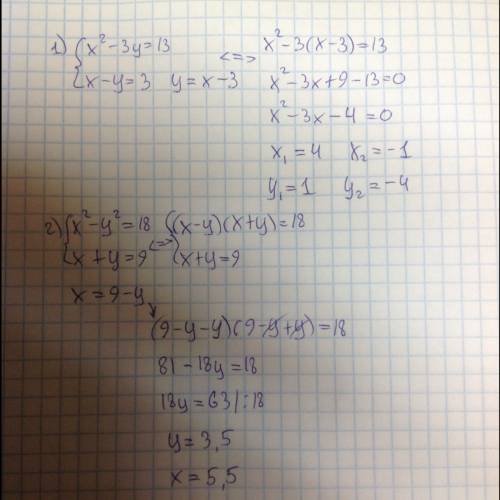 1) { x² - 3y = 13 <=> x² - 3(x - 3) = 13
{ x - y = 3 y = x - 3 x² - 3x + 9 - 13 = 0
x² - 3x - 4 = 0
x₁ = 4 x₂ = -1
y₁ = 1 y₂ = -4
2) { x² - y² = 18 <=> { (x - y)(x + y) = 18
{ x + y = 9 { x + y = 9
x = 9 - y
(9 - y - y)(9 - y + y) = 18
81 - 18y = 18
18y = 63 | : 18
y = 3,5
x = 5,5